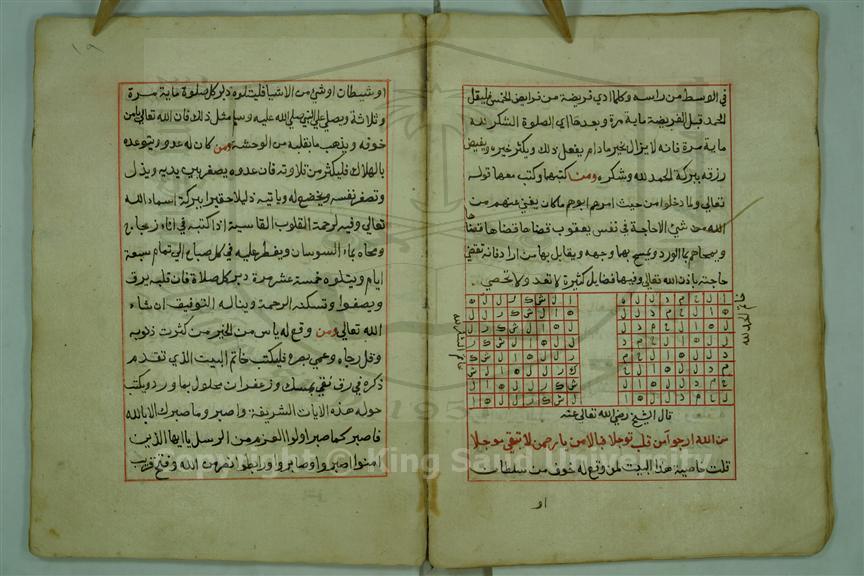 في الوسط من راسه وكلما ادي فريضة من فرايض الخمس فليقل
الحمد قبل الفريضة ماية مرة وبعدها اي الصلوة الشكر لله
ماية مرة فانه لا يزال بخير مادام يفعل ذلك ويكثر خيره ويفيض
رزقه ببركة الحمد لله وشكره ومن كتبها وكتب معها قوله
تعالي ولما دخلوا من حيث امرهم ابوهم ماكان يغني عنهم من
الله من شيء الا حاجة في نفس يعقوب قضاها قضاها قضاها
ويمحاهم بماء الورد ويمسح بها وجهه ويقابل بها من اراد فانه تقضي
حاجته باذن الله تعالي وفيها فضايل كثيرة لا تعد ولا تحصي
خاتم الحمد لله
خاتم الشكر لله
قال الشيخ رضي الله تعالي عنه
من الله ارجو آمن قلب توجلا فبالامن يا رحمن لا تبقي موجلا
قلت خاصية هذا البيت لمن وقع له خوف من سلطان
او
١٩
او شيطان او شيء من الاشيا فليتلوه دبر كل صلوة ماية مرة
وثلاثة ويصلي علي النبي صلي الله عليه وسلم مثل ذلك فان الله تعالي يامن
خوفه ويذهب ما بقلبه من الوحشة ومن كان له عدو ويتوعده
بالهلاك فليكثر من تلاوته فان عدوه يصفر بين يديه ويذل
وتصغر نفسه ويخضع له وياتيه ذليلا حقيرا ببركة اسماء الله
تعالي وفيه لرحمة القلوب القاسية اذا كتبه في اناء زجاج
ومحاه بماء السوسان ويفطر عليه في كل صباح الي تمام سبعة
ايام ويتلوه خمسة عشر مرة دبر كل صلاة فان قلبه يرق
ويصفوا وتسكنه الرحمة ويناله التوفيق ان شاء
الله تعالي ومن وقع له ياس من الخير من كثرت ذنوبه
وقل رجاه وعمي بصره فليكتب خاتم البيت الذي تقدم
ذكره في رق نقي بمسك وزعفران محلول بماء ورد ويكتب
حوله هذه الايات الشريفة واصبر وما صبرك الا بالله
فاصبر كما صبر اولوا العزم من الرسل يا ايها الذين
امنوا اصبروا وصابروا ورابطوا نصر من الله وفتح قريب
Copyright © King Saud University
1957